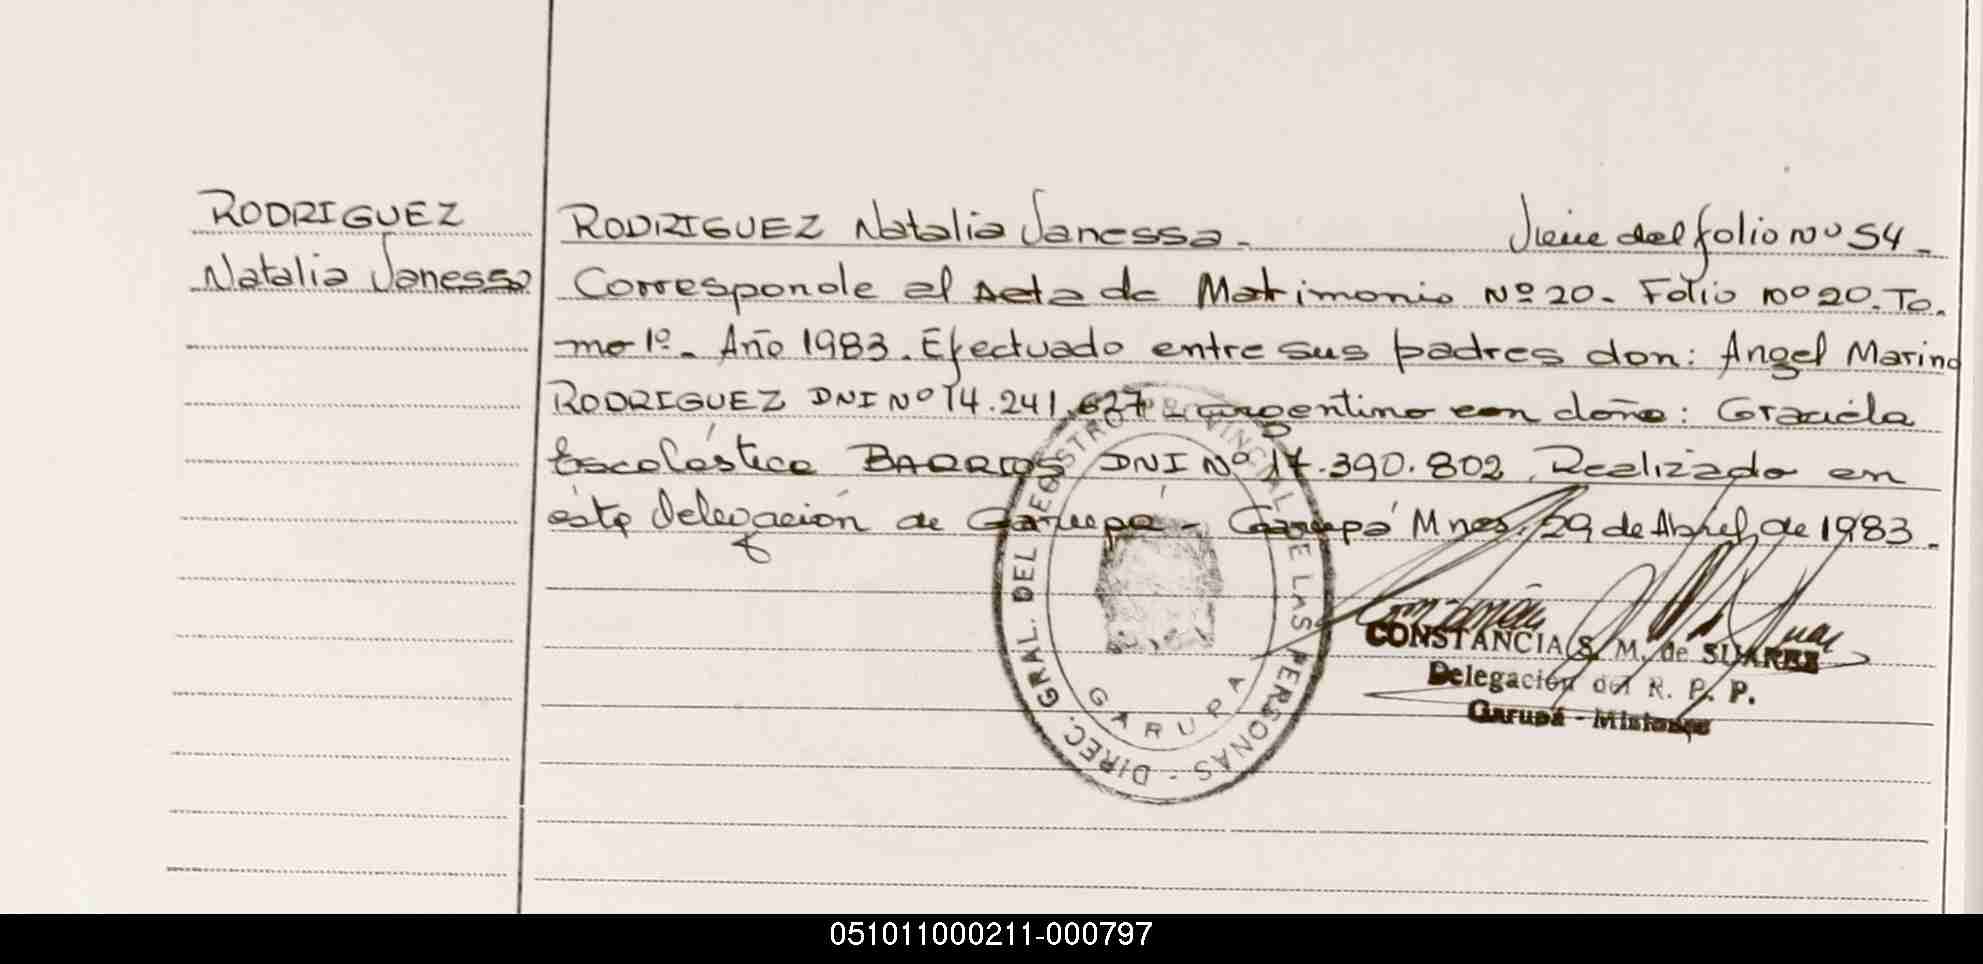 RODRIGUEZ
Natalia Vanessa
RODRIGUEZ Natalia Vanessa. Viene del folio Nº 54.
Corresponde al Acta de Matrimonio Nº 20. Folio nº 20. To.
mo 1º. Año 1983. Efectuado entre sus padres don: Angel Marino
RODRIGUEZ DNI Nº 14.241.627 argentino con doña: Graciela
Escolástica BARRIOS DNI Nº 17.390.802. Realizado en
ésta delegación de Garupá - Garupá Mnes, 29 de Abril de 1983.
DIREC. GRAL. DEL REGISTRO PROVINCIAL DE LAS PERSONAS -
GARUPA
CONSTANCIA S. M. de SUAREZ
Delegación del R. P. P.
Garupá - Misiones
051011000211-000797